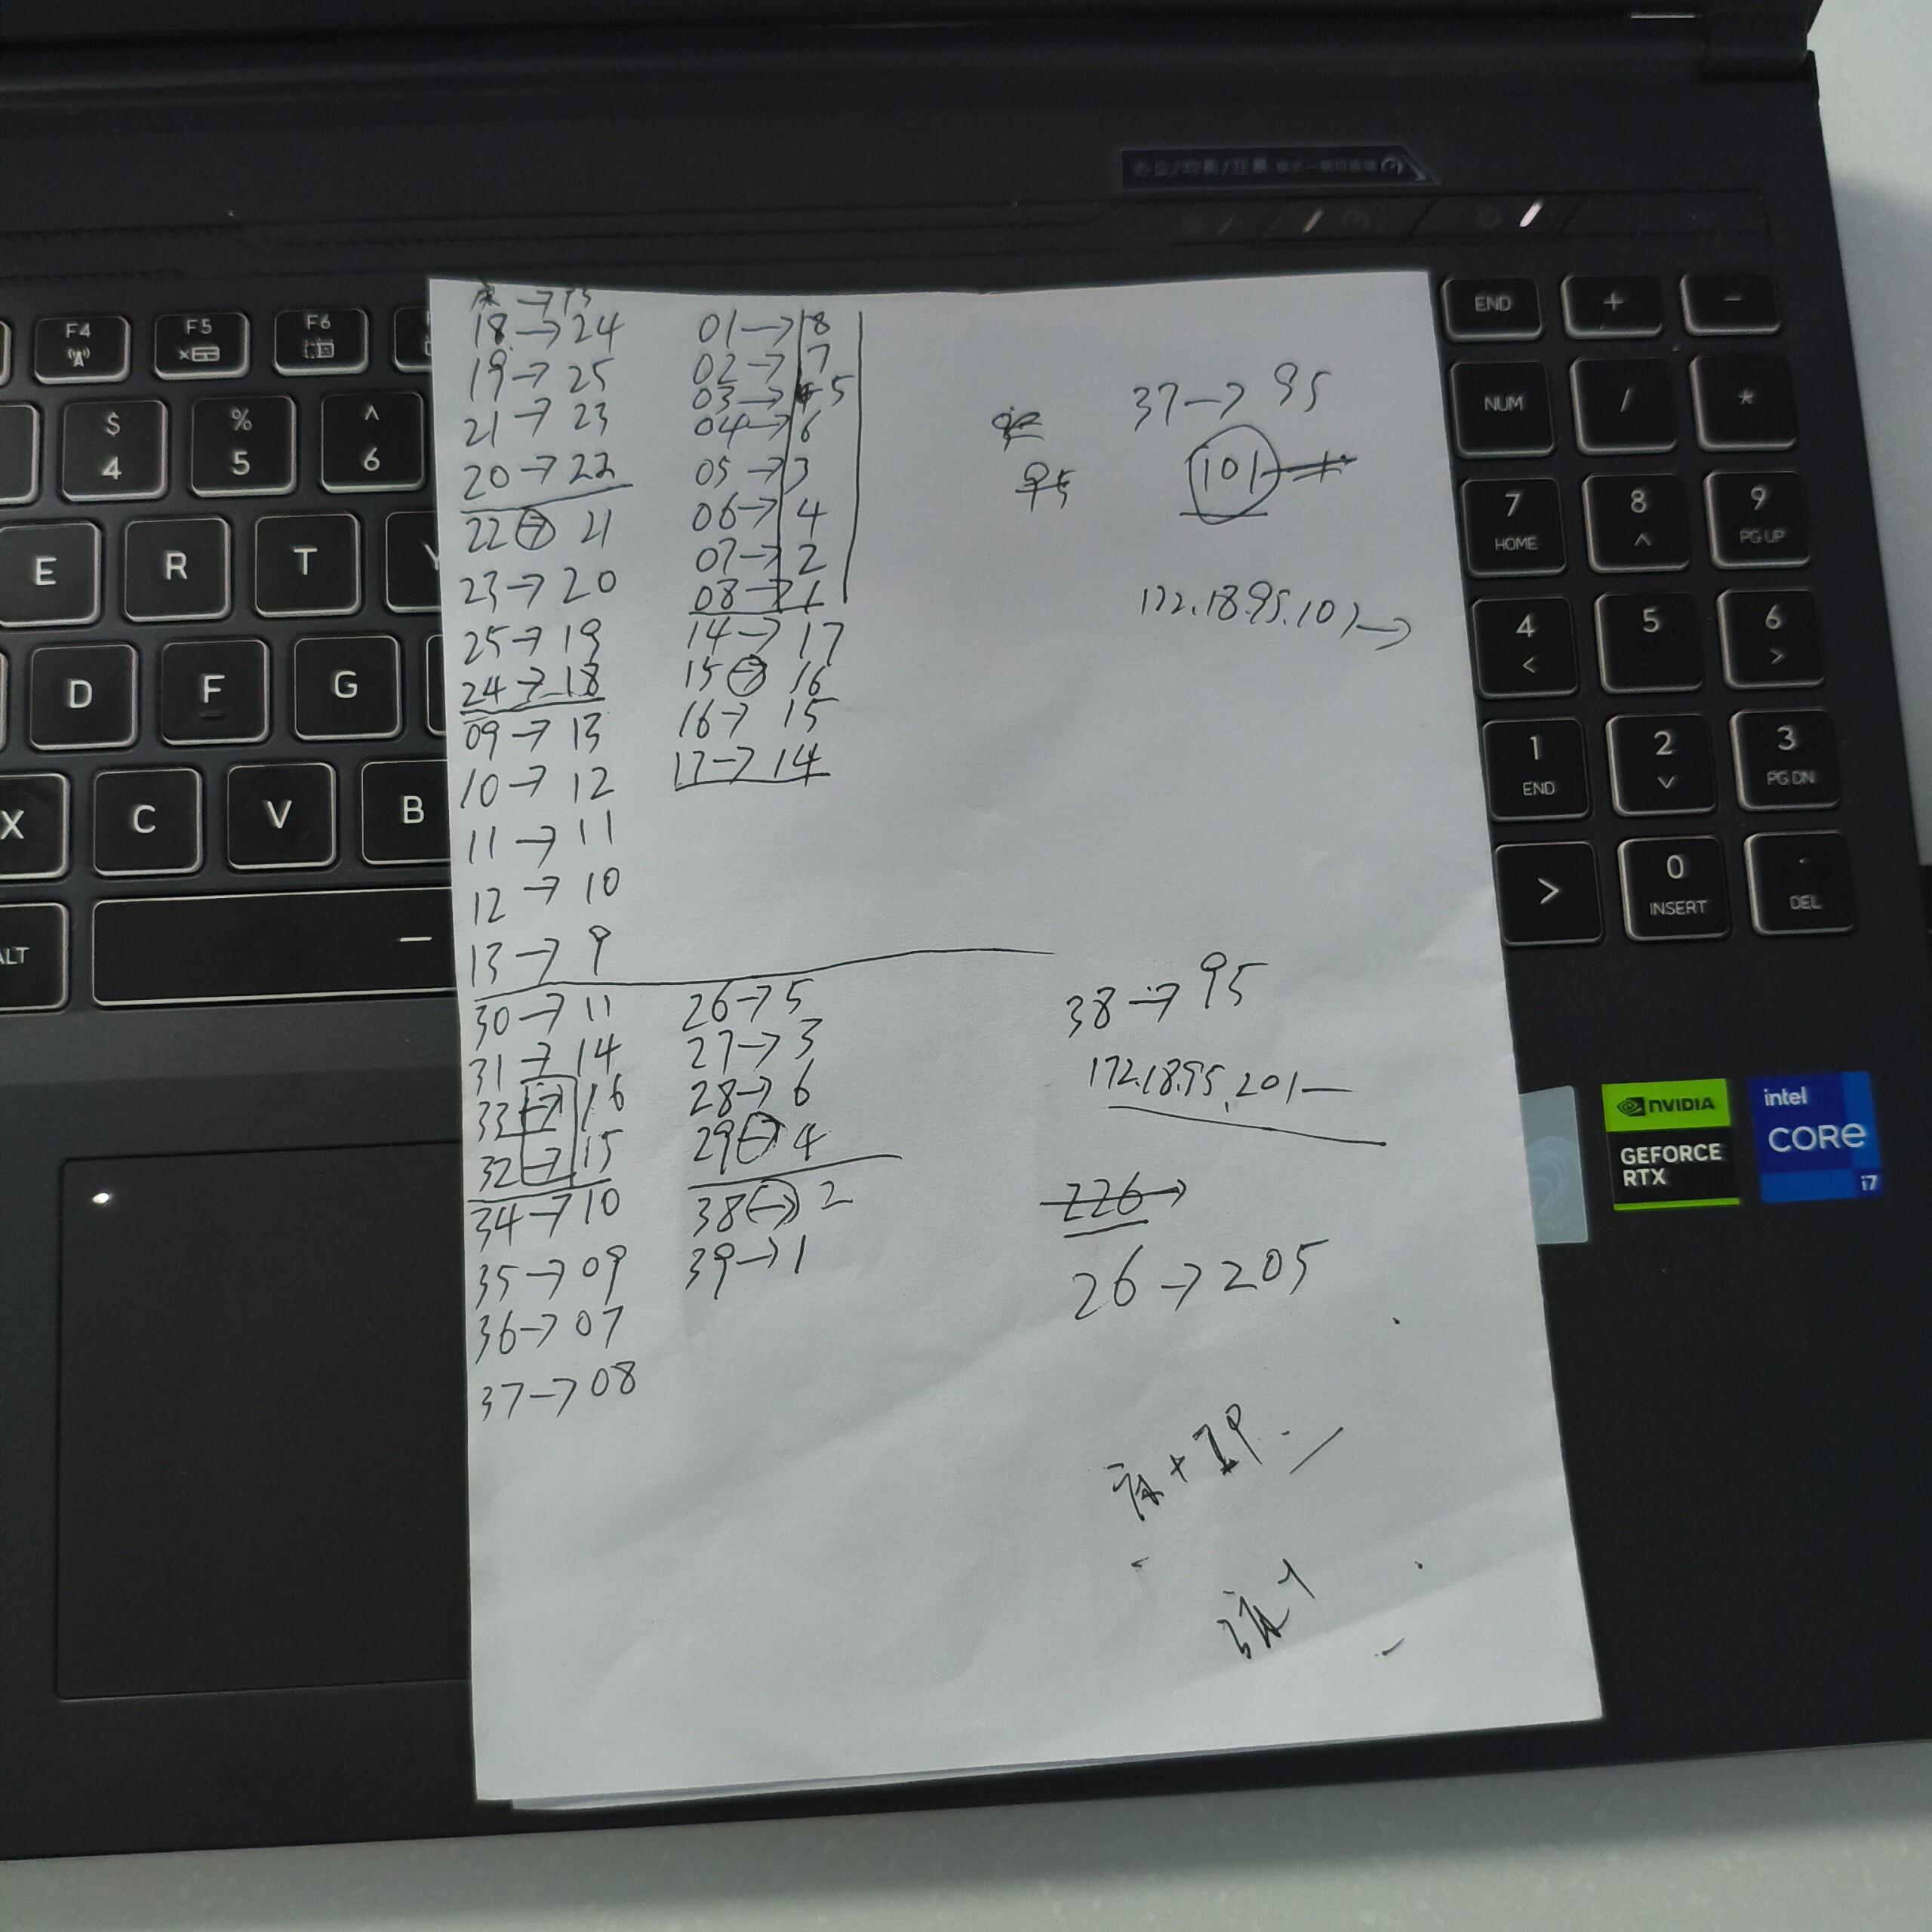 床→
18→24
19→25
21→23
20→22
22→21
23→20
25→19
24→18
09→13
10→12
11→11
12→10
13→9
30→11
31→14
33→16
32→15
34→10
35→09
36→07
37→08
01→8
02→7
03→5
04→6
05→3
06→4
07→2
08→1
14→17
15→16
16→15
17→14
26→5
27→3
28→6
29→4
38→2
39→1
37→95
95
101
172.18.95.101→
38→95
172.18.95.201—
226→
26→205
床+IP.
END
+
-
NUM
/
*
7
HOME
8
^
9
PG UP
4
<
5
6
>
1
END
2
v
3
PG DN
>
0
INSERT
.
DEL
F4
F5
F6
$
4
%
5
^
6
E
R
T
Y
D
F
G
X
C
V
B
ALT
办公/均衡/狂暴 模式一键切换键
NVIDIA
GEFORCE
RTX
intel
CORE
i7